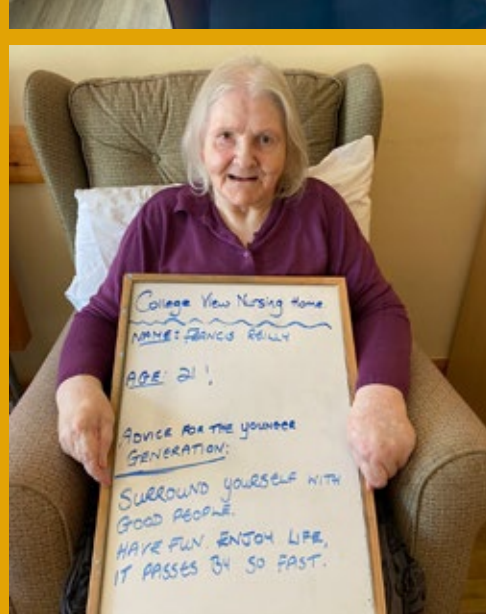 College View Nursing Home
NAME: FRANCIS REILLY
AGE: 21!
ADVICE FOR THE YOUNGER
GENERATION:
SURROUND YOURSELF WITH
GOOD PEOPLE.
HAVE FUN. ENJOY LIFE,
IT PASSES BY SO FAST.